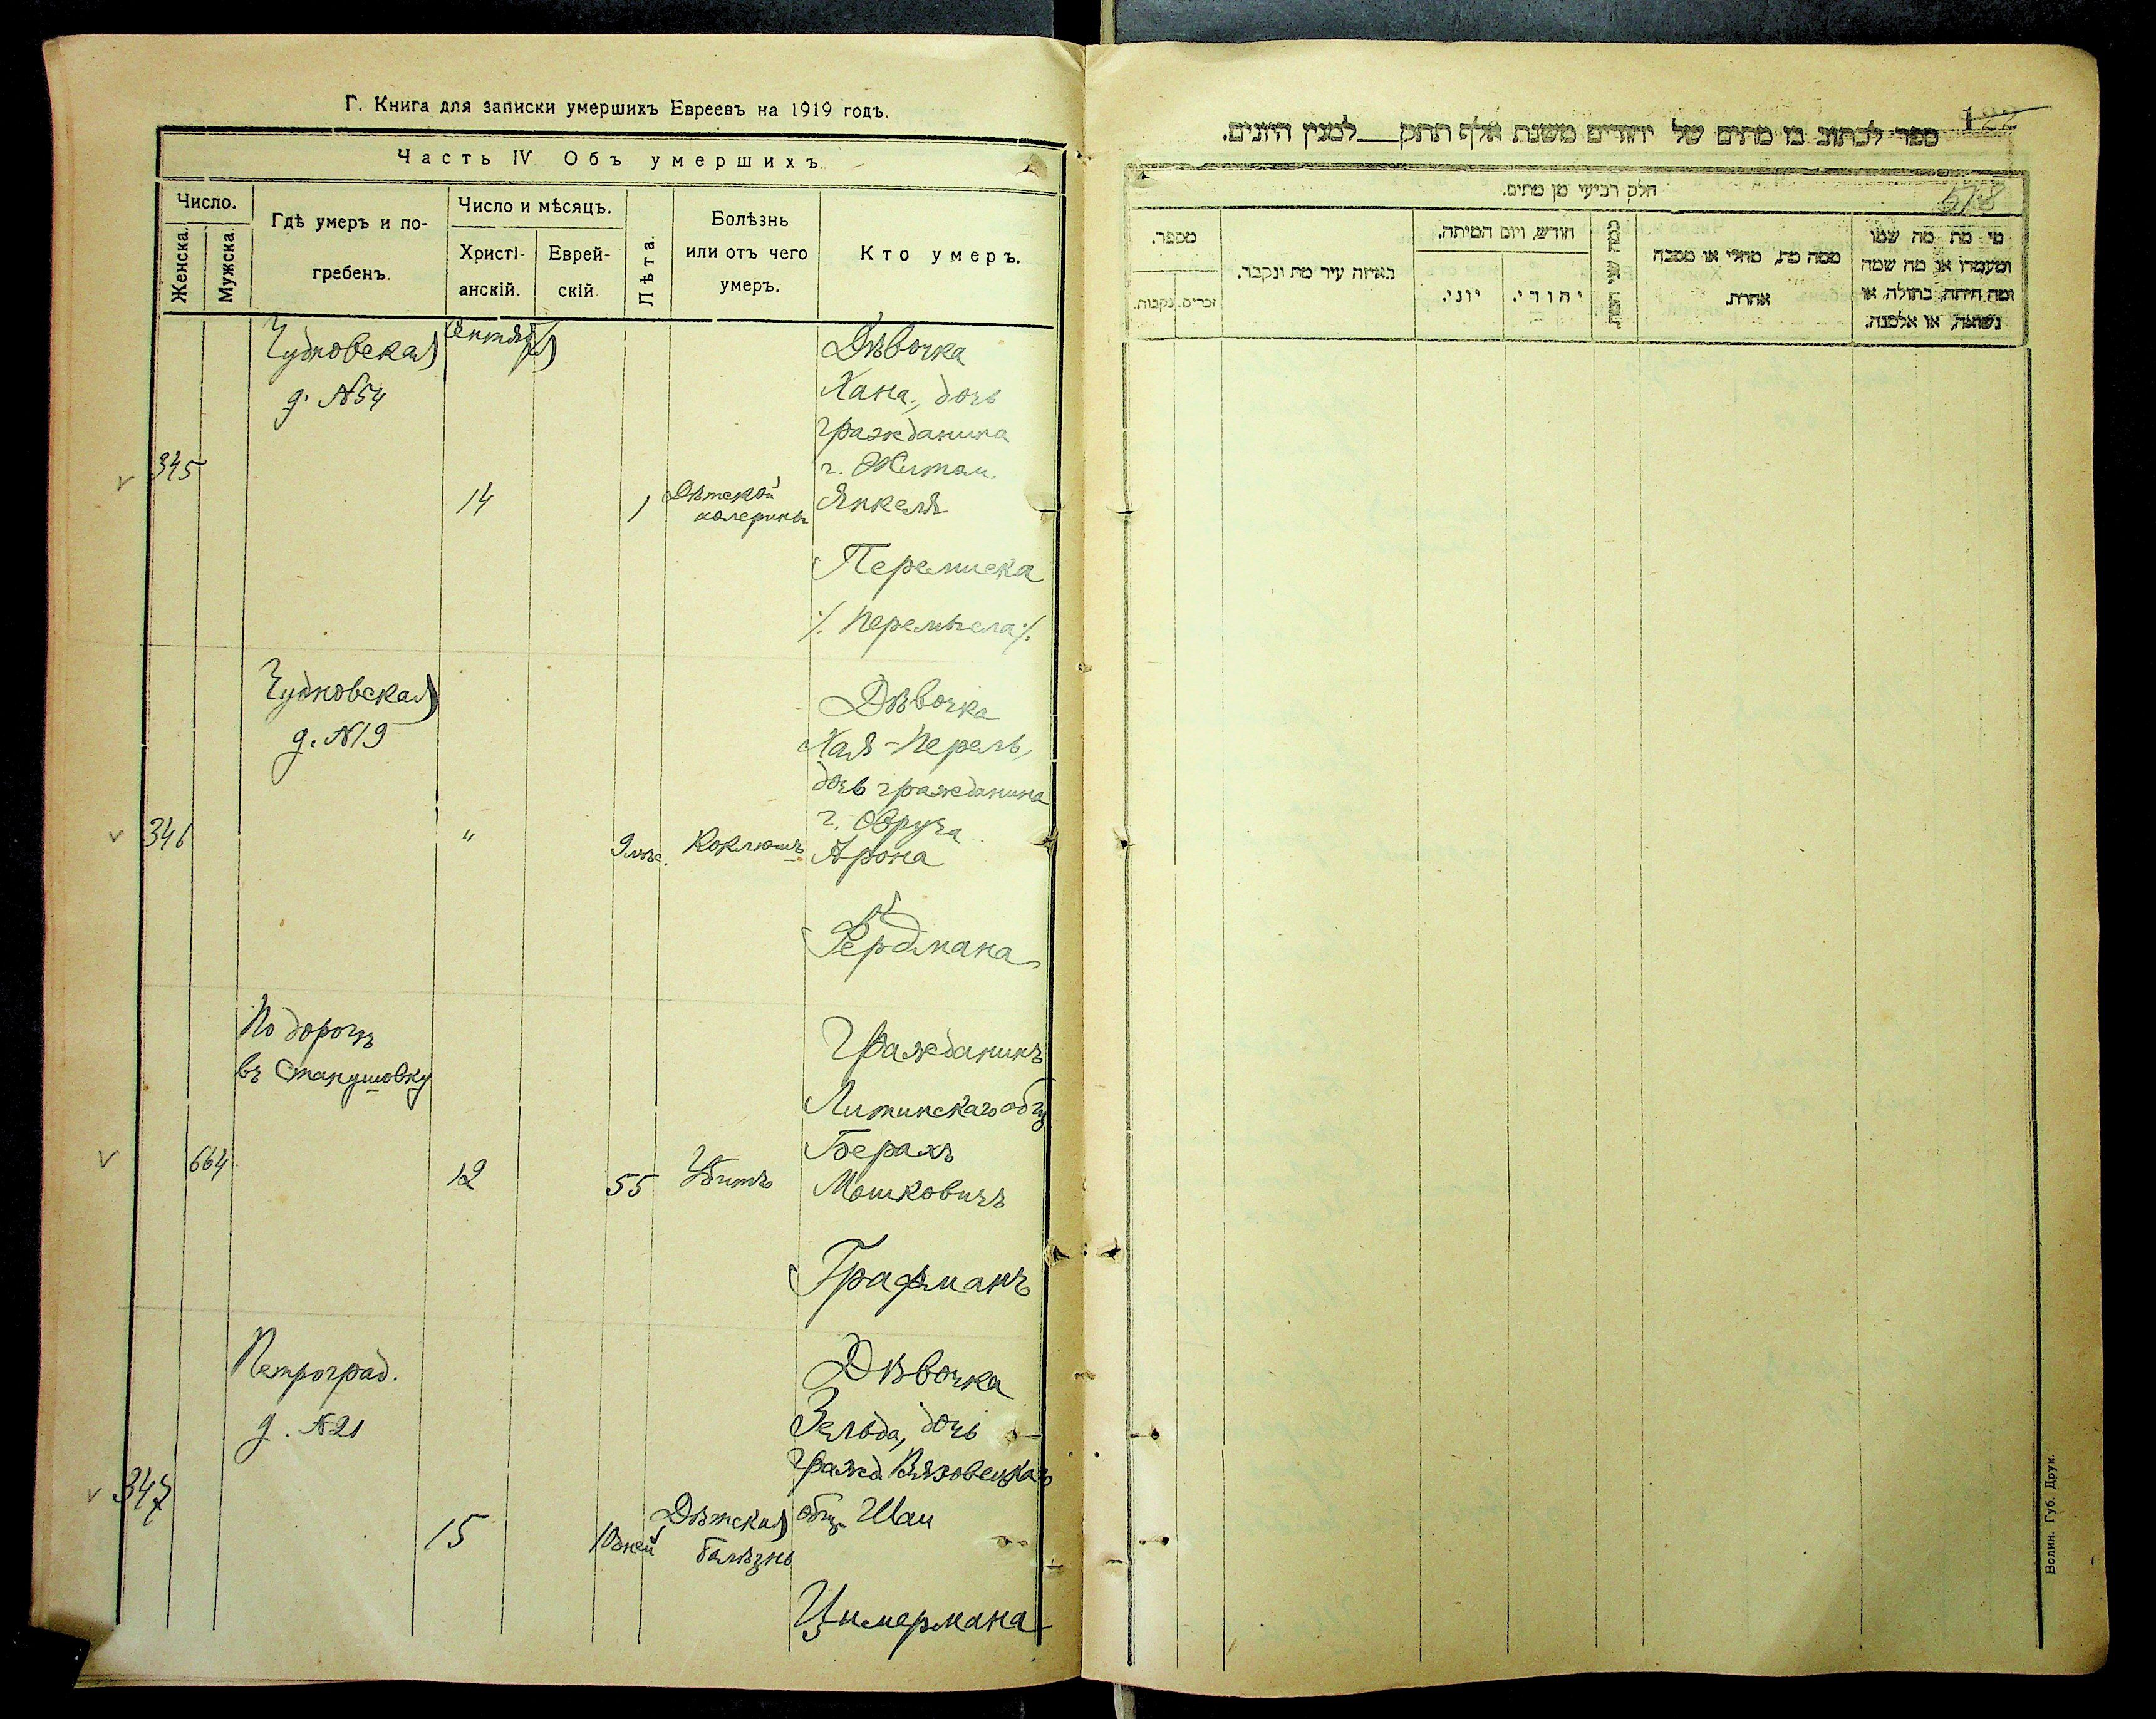 Г. Книга для записки умершихъ Евреевъ на 1919 годъ.
Часть IV Объ умершихъ
Число.
Женска.
Мужска.
Гдѣ умеръ и по-
гребенъ.
Число и мѣсяцъ.
Христі-
анскій.
Еврей-
скій
Лѣта.
Болѣзнь
или отъ чего
умеръ.
Кто умеръ.
345
Чудновская
д. №54
14
1
Дѣтской
холерины
Дѣвочка
Хана, дочь
гражданина
г. Житом.
Янкеля
Перемиска
·/. Перемысла ·/.
346
Чудновская
д. №19
"
9 мѣс.
Коклюшъ
Дѣвочка
Хая-Перель,
дочь гражданина
г. Овруча
Арона
Фердмана
664
По дорогѣ
въ Станушовку
12
55
Убитъ
Гражданинъ
Литинскаго общ
Берахъ
Мошковичъ
Графманъ
347
Петроград.
д. №21
15
10 дней
Дѣтская
болѣзнь
Дѣвочка
Зельда, дочь
гражд.
общ. Шаи
Цимермана
122
ספר לכתוב בו מתים של יהודים משנת אלף תתק___למנין היונים.
חלק רביעי מן מתים.
מי מת מה שמו
ומעמדו או מה שמה
ומה היתה, בתולה, או
נשואה, או אלמנה.
ממה מת, מחלי או מסבה
אחרת.
חודש, ויום המיתה.
יהודי.
יוני.
באיזה עיר מת ונקבר.
מספר.
זכרים.
נקבות.
Волин. Губ. Друк.